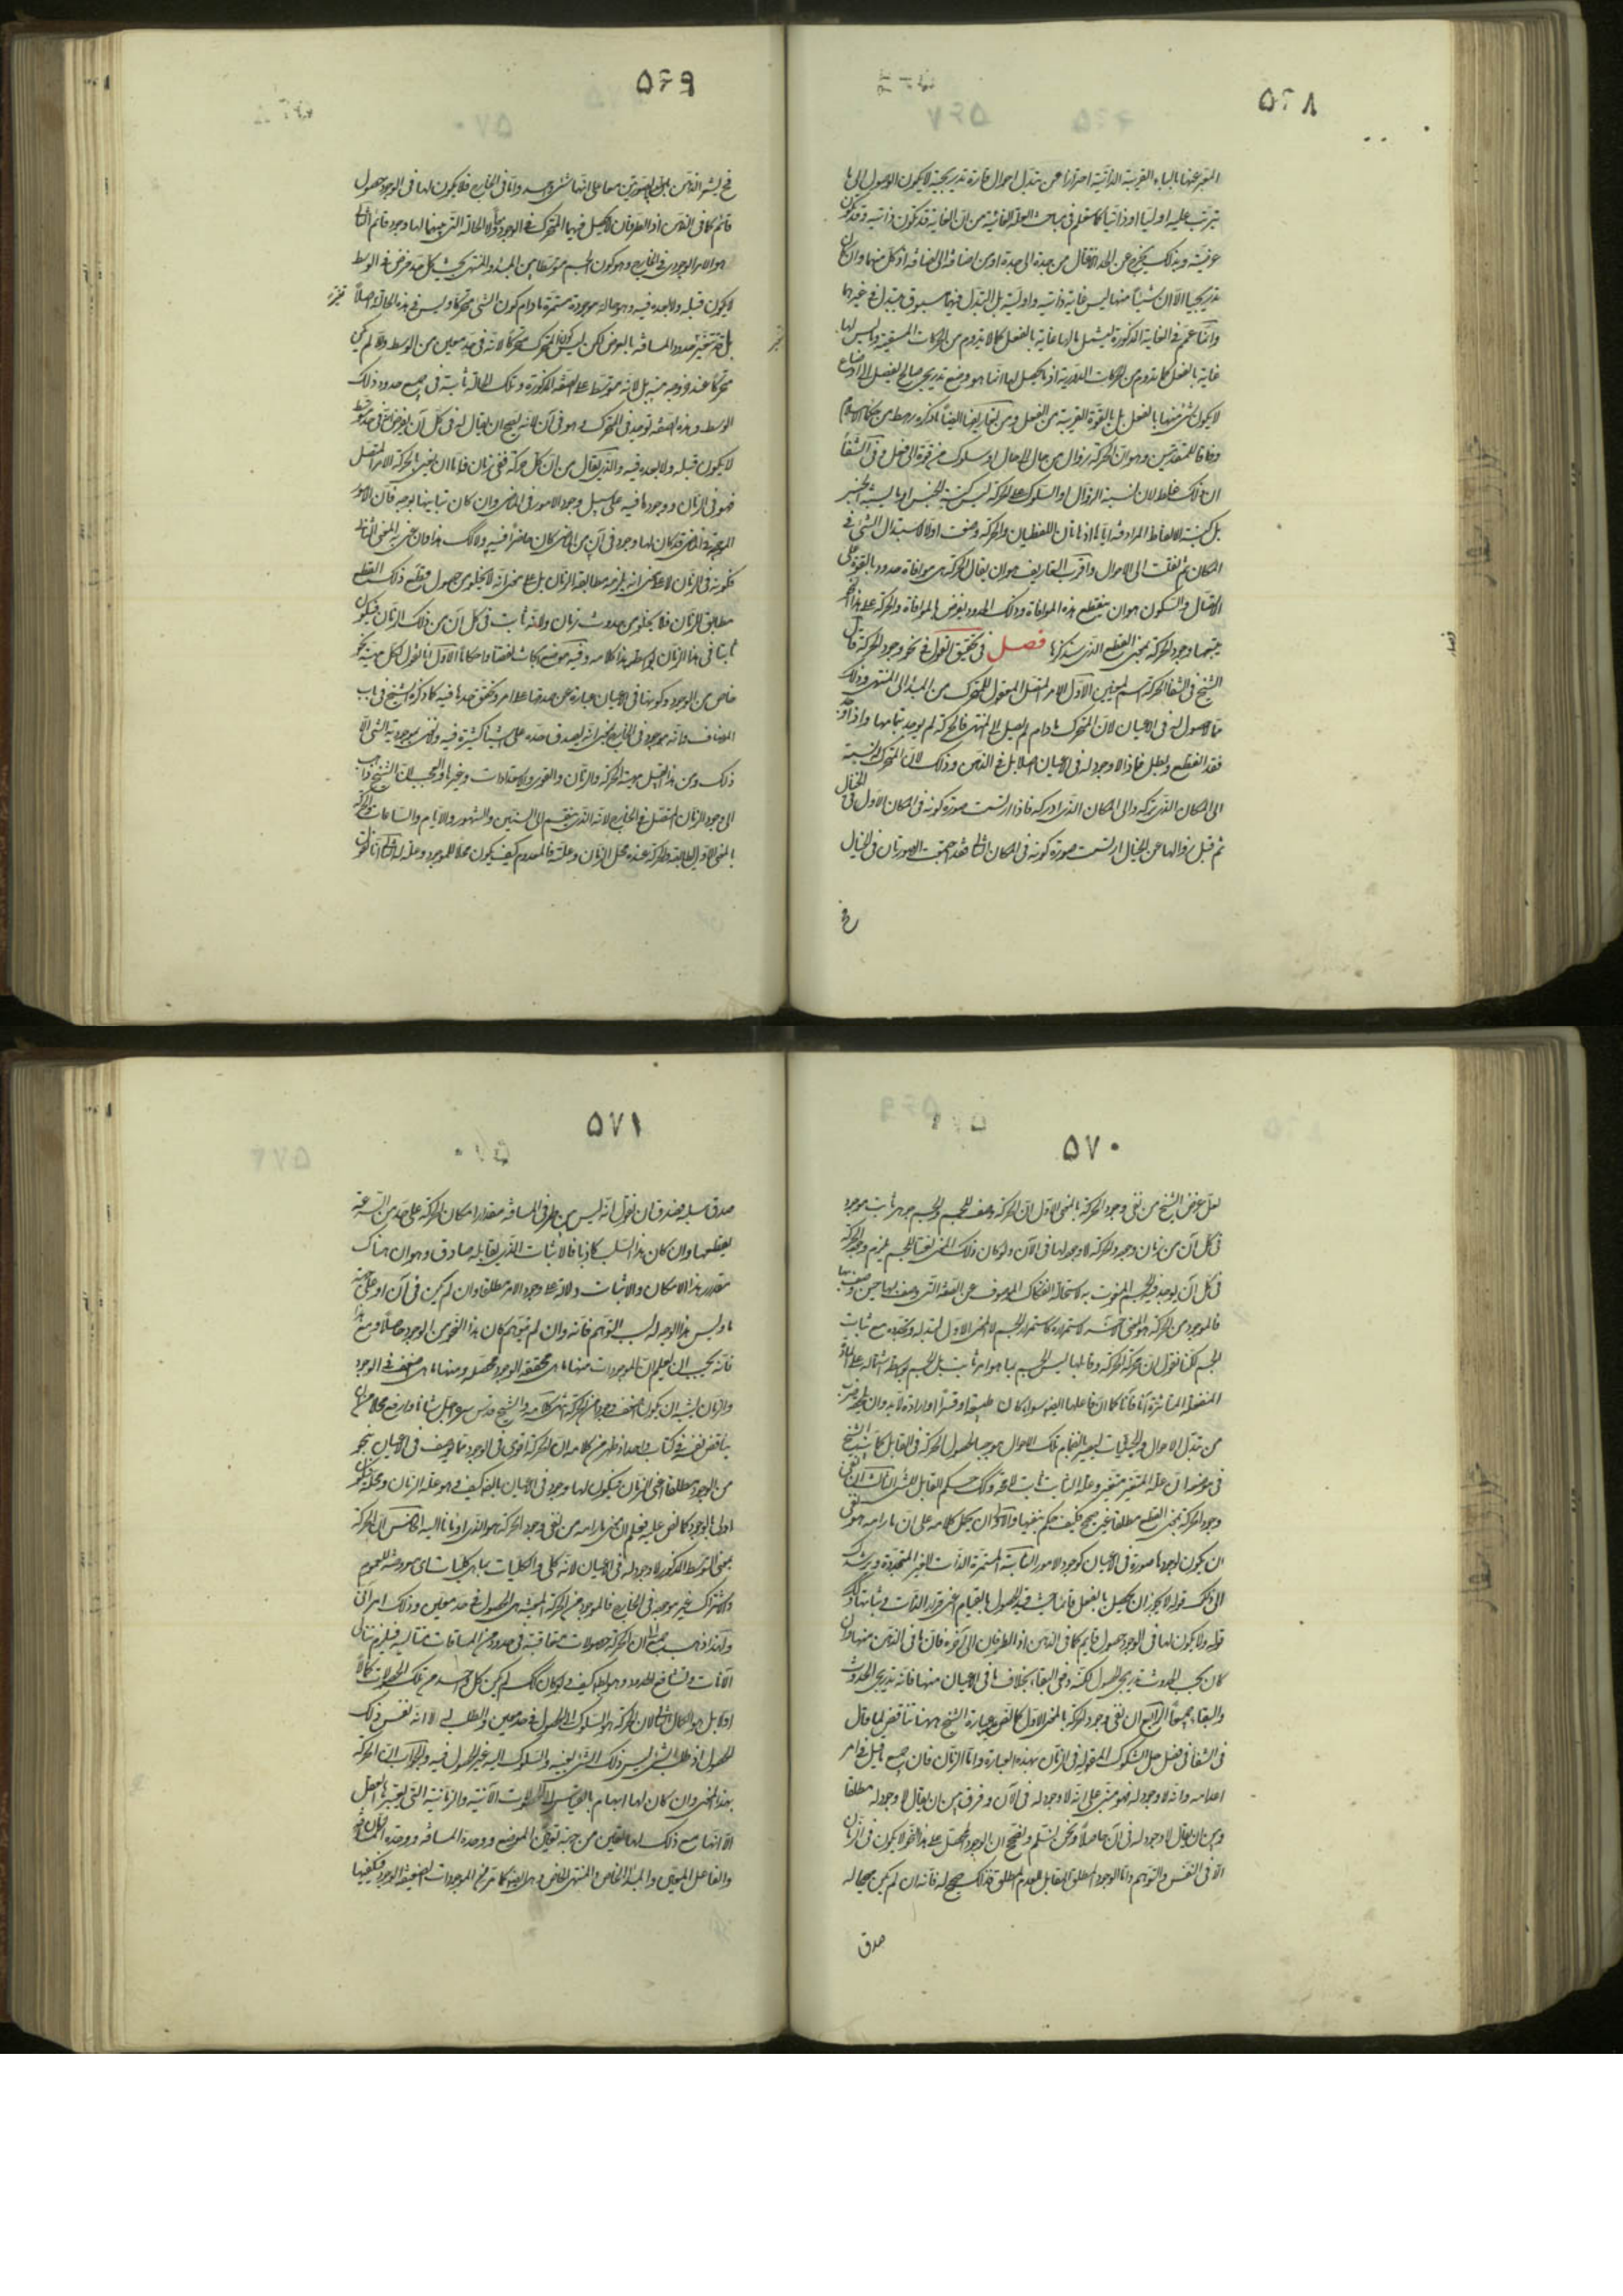 ۵۶۸
المعبر عنها بالباء القريبة الذاتية احترازا عن تبدل احوال قارة تدريجية لا يكون الوصول الى ما
يترتب عليه اوليا او ذاتيا كما ستعلم في مباحث العلة الغائية من ان الغاية قد تكون ذاتية وقد تكون
عرضية وبذلك يخرج عن الحد الانتقال من جدة الى جدة او من اضافة الى اضافة اذ كل منهما وان كان
تدريجيا الا ان شيئا منها ليس غاية ذاتية واولية بل التبدل فيها مسبوق بتبدل في غيرها
وانما عمم في الغاية المذكورة ليشمل ما لها غاية بالفعل كما لا يدوم من الحركات المستقيمة وما ليس لها
غاية بالفعل كما يدوم من الحركات الدورية اذ ما يحصل لها انما هو وضع تدريجي صالح لفصل الى اوضاع
لا يكون شيء منها بالفعل بل بالقوة القريبة من الفعل ومن تعاريفها ايضا ما ذكره رهط من حكماء الاسلام
وفاقا للمتقدمين وهو ان الحركة زوال من حال الى حال او سلوك من قوة الى فعل وفي الشفا
ان ذلك غلط لان نسبة الزوال والسلوك الى الحركة ليس كنسبة الجنس او ما يشبه الجنس
بل كنسبة الالفاظ المرادفة اياها اذ هاتان اللفظتان والحركة وضعت اولا لاستبدال الشيء في
المكان ثم نقلت الى الاحوال واقرب التعاريف هو ان يقال الحركة هي موافاة حدود بالقوة على
الاتصال والسكون هو ان ينقطع هذه الموافاة وتلك الحدود يفرض بالموافاة والحركة على هذا النحو
يتبعها وجود الحركة بمعنى القطع الذي سنذكرها فصل في تحقيق القول في نحو وجود الحركة قال
الشيخ في الشفا الحركة اسم لمعنيين الاول الامر المتصل المعقول للمتحرك من المبدا الى المنتهى وذلك
مما لا حصول له في الاعيان لان المتحرك ما دام لم يصل الى المنتهى فالحركة لم يوجد بتمامها واذا وصل
فقد انقطع وبطل فاذا لا وجود له في الاعيان اصلا بل في الذهن وذلك لان المتحرك له نسبة
الى المكان الذي تركه والى المكان الذي ادركه فاذا ارتسمت صورة كونه في المكان الاول في الخيال
ثم قبل زوالها عن الخيال ارتسمت صورة كونه في المكان الثاني فقد اجتمعت الصورتان في الخيال
فح
۵۶۹
فح يشعر الذهن بالصورتين معا على انهما شيء واحد واما في الخارج فلا يكون لها في الوجود حصول
قائم كما في الذهن اذ الطرفان لا يحصل فيهما المتحرك في الوجود معا ولا الحالة التي بينهما لها وجود قائم الثاني
هو الامر الوجودي في الخارج وهو كون الجسم متوسطا بين المبدا والمنتهى بحيث كل حد فرض في الوسط
لا يكون قبله ولا بعده فيه وهو حالة موجودة مستمرة ما دام كون الشيء متحركا وليس في هذه الحالة تغير اصلا
بل قد يتغير حدود المسافة بالعرض لكن ليس كون المتحرك متحركا لانه في حد معين من الوسط والا لم يكن
متحركا عند خروجه منه بل لانه متوسط على الصفة المذكورة وتلك الحالة ثابتة في جميع حدود ذلك
الوسط وهذه الصفة توجد في المتحرك وهو في آن لانه يصح ان يقال له في كل آن يفرض انه في حد وسط
لا يكون قبله ولا بعده فيه والذي يقال من ان كل حركة ففي زمان فاما ان يعنى بالحركة الامر المتصل
فهو في الزمان ووجودها فيه على سبيل وجود الامور في الماضي وان كان تباينها بوجه فان الامور
الموجودة في الماضي قد كان لها وجود في آن من الماضي كان حاضرا فيه ولا كذلك هذا فان عنى به المعنى الثاني
فكونه في الزمان لا على معنى انه يلزمه مطابقة الزمان بل على معنى انه لا يخلو من حصول قطع ذلك القطع
مطابق للزمان فلا يخلو من حدوث زمان ولانه ثابت في كل آن من ذلك الزمان فيكون
ثابتا في هذا الزمان بواسطته هذا كلامه وفيه مواضع ابحاث نقضا واحكاما الاول انا نقول لكل مهية نحو
خاص من الوجود وكونها في الاعيان عبارة عن صدقها على امر وتحقق حدها فيه كما ذكره الشيخ في باب
المضاف وانه موجود في الخارج بمعنى انه يصدق حده على اشياء كثيرة فيه ولا نعني بموجودية الشيء الا
ذلك ومن هذا القبيل مهية الحركة والزمان والقوى والاستعدادات وغيرها والعجب ان الشيخ ذاهب
الى وجود الزمان المتصل في الخارج لانه الذي ينقسم الى السنين والشهور والايام والساعات والحركة
بالمعنى الاول المطابقة للحركة عنده محل الزمان وعلته فالمعدوم كيف يكون محلا للموجود وعلة له الثاني انا نقول
۵۷۰
لعل غرض الشيخ من نفي وجود الحركة بالمعنى الاول ان الحركة وصف للجسم والجسم جوهر ثابت موجود
في كل آن من زمان وجوده والحركة لا وجود لها في الآن ولو كان ذلك المعنى نعتا للجسم يلزم وجود الحركة
في كل آن يوجد فيه الجسم المنعوت به لاستحالة انفكاك الموصوف عن الصفة التي وصف بها حين وصف بها
فالموجود من الحركة هو المعنى التوسط لاستمراره كاستمرار الجسم لا المعنى الاول لتبدله وتجدده مع ثبات
الجسم لكنا نقول ان محل الحركة وقابلها ليس الجسم بما هو امر ثابت بل الجسم بواسطة اشتماله على المادة
المنفعلة المتأثرة آنا فآنا كما ان فاعلها ايضا سواء كان طبيعة او قسرا او ارادة لا بد وان يلحقه ضرب
من تبدل الاحوال والحيثيات ليصير بانضمام تلك الاحوال موجبا لحصول الحركة في القابل كما بينه الشيخ
في موضعه ان علة المتغير متغير وعلة الثابت ثابت لا محة وكذلك حكم القابل للشيء الثالث ان نفي
وجود الحركة بمعنى القطع مطلقا غير صحيح فكيف حكم بنفيها والاولى ان يحمل كلامه على ان مرامه هو نفي
ان يكون لوجودها صورة في الاعيان كوجود الامور الثابتة المستمرة الذات الغير المتجددة ويرشدك
الى ذلك قوله لا يجوز ان يحصل بالفعل قائما حيث قيد الحصول بالقيام اعني قرار الذات وثباتها وكذا
قوله ولا يكون لها في الوجود حصول قائم كما في الذهن اذ الطرفان الى آخره فان ما في الذهن منها وان
كان بحسب الحدوث تدريجي الحصول لكنه دفعي البقاء بخلاف ما في الاعيان منها فانه تدريجي الحدوث
والبقاء جميعا الرابع ان نفي وجود الحركة بالمعنى الاول كما نص عليه عبارة الشيخ ههنا يناقض لما قال
في الشفا في فصل حل الشكوك المقولة في الزمان بهذه العبارة واما الزمان فان جميع ما قيل في امر
اعدامه وانه لا وجود له فهو مبني على انه لا وجود له في الآن وفرق بين ان يقال لا وجود له مطلقا
وبين ان يقال لا وجود له في آن حاصلا ونحن نسلم ونصحح ان الوجود المحصل على هذا النحو لا يكون في الزمان
الا في النفس والتوهم واما الوجود المطلق المقابل للعدم المطلق فذلك صحيح له فانه ان لم يكن صحيحا له
صدق
۵۷۱
صدق سلبه فصدق ان نقول انه ليس بين طرفي المسافة مقدار امكان لحركة على حد من السرعة
يقطعها وان كان هذا السلب كاذبا فالاثبات الذي يقابله صادق وهو ان هناك
مقدار هذا الامكان والاثبات دلالة على وجود الامر مطلقا وان لم يكن في آن او على جهة
ما وليس هذا الوجه له بسبب التوهم فانه وان لم يتوهم كان هذا النحو من الوجود حاصلا ومع هذا
فانه يجب ان يعلم ان الموجودات منها ما هي محققة الوجود محصلة ومنها ما هي اضعف في الوجود
والزمان يشبه ان يكون اضعف وجودا من الحركة انتهى كلامه والشيخ قدس سره اجل شانا وارفع محلا من ان
يناقض نفسه في كتاب واحد اذ ظهر من كلامه ان الحركة اقوى في الوجود مما يوصف في الاعيان بنحو
من الوجود مطلقا اعني الزمان فيكون لها وجود في الاعيان بالضرورة كيف وهو علة الزمان ومحله فيكون
اولى بالوجود كما نص عليه فعلم ان مرامه من نفي وجود الحركة هو الذي اومأنا اليه الخامس ان الحركة
بمعنى التوسط المذكور لا وجود له في الاعيان لانه كلي والكليات بما هي كليات اي معروضة للعموم
والاشتراك غير موجودة في الخارج فالموجود من الحركة المعينة هي الحصول في حد معين وذلك امر آني
ولهذا ذهب جمع الى ان الحركة حصولات متعاقبة في حدود من المسافات متتالية فيلزم تتالي
الآنات وتشافع الحدود وهو باطل كيف ولو كان كذلك لم يكن كل واحد من تلك الحصولات كمالا
اولا بل هو الكمال الثاني لان الحركة هو السلوك الى الحصول في حد معين والطلب له لا انه نفس ذلك
الحصول اذ طلب الشيء ليس ذلك الشيء بعينه والسلوك اليه غير الحصول فيه والجواب ان الحركة
بهذا المعنى وان كان لها ابهام بالقياس الى الحصولات الآنية والزمانية التي يعتبرها العقل
الا انها مع ذلك لها تعين من جهة تعين الموضوع ووحدة المسافة ووحدة الزمان
والفاعل المعين والمبدا الخاص والمنتهى الخاص وهي ايضا كما مر من الموجودات الضعيفة الوجود فيكفيها